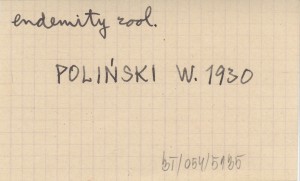 endemity zool.
POLIŃSKI W. 1930
BT/054/5135